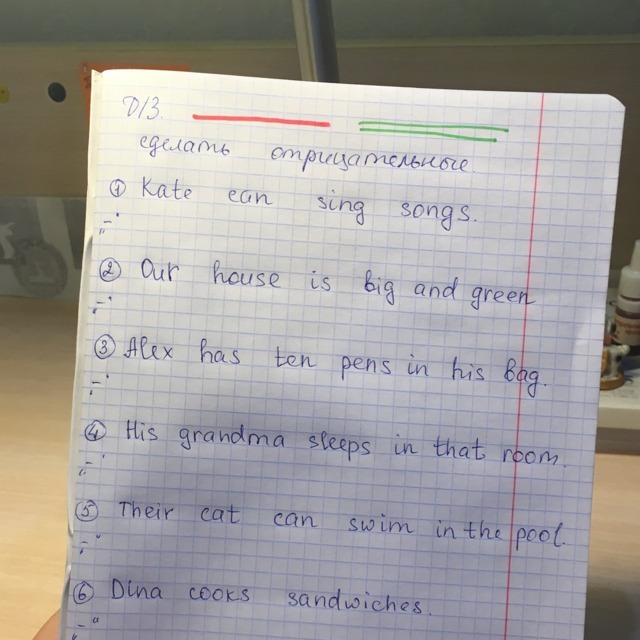 D/З.
сделать отрицательные
① Kate can sing songs.
-"
② Our house is big and green
-"
③ Alex has ten pens in his bag.
-"
④ His grandma sleeps in that room.
-"
⑤ Their cat can swim in the pool.
-"
⑥ Dina cooks sandwiches.
-"